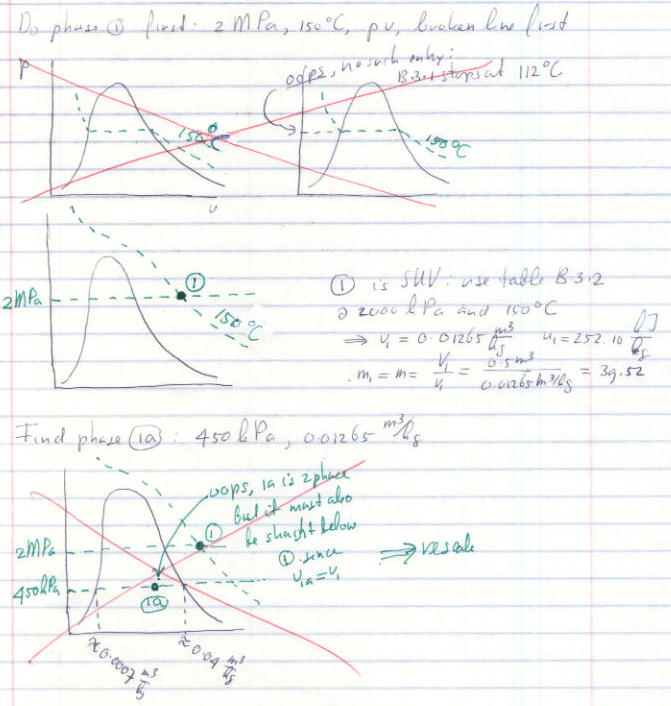 Do phase ① first: 2 MPa, 150°C, pv, broken line first
oops, no such entry:
B.3.1 stops at 112°C
p
150°C
v
150°C
2MPa
①
150°C
① is SHV: use table B.3.2
@ 2000 kPa and 150°C
⇒ v₁ = 0.01265 m³/kg u₁ = 252.10 kJ/kg
m₁ = m = V₁/v₁ = 0.5 m³/0.01265 m³/kg = 39.52
Find phase (1a): 450 kPa, 0.01265 m³/kg
oops, 1a is 2 phase
but it must also
be straight below
① since
v₁ₐ = v₁
⇒ rescale
2MPa
①
450kPa
(1a)
≈ 0.0007 m³/kg
≈ 0.04 m³/kg